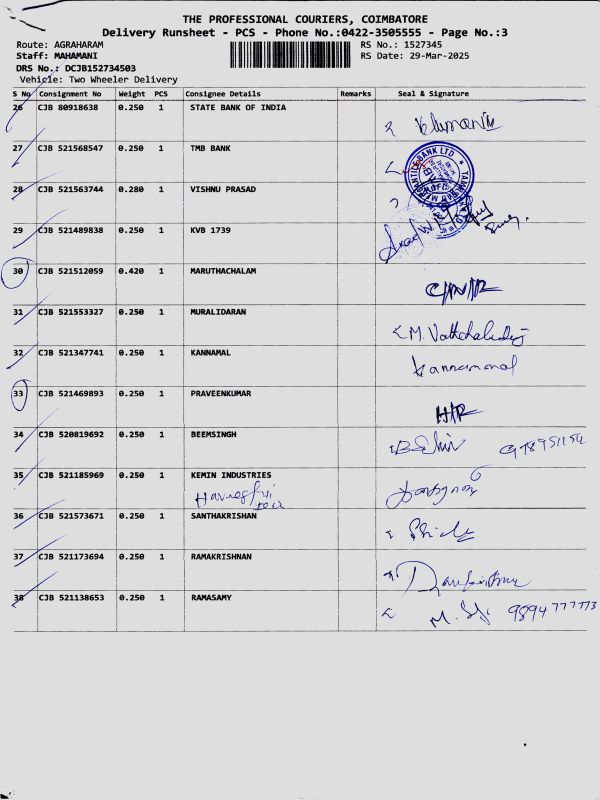 THE PROFESSIONAL COURIERS, COIMBATORE
Delivery Runsheet - PCS - Phone No.:0422-3505555 - Page No.:3
Route: AGRAHARAM RS No.: 1527345
Staff: MAHAMANI RS Date: 29-Mar-2025
DRS No.: DCJB152734503
Vehicle: Two Wheeler Delivery
S No Consignment No Weight PCS Consignee Details Remarks Seal & Signature
26 CJB 80918638 0.250 1 STATE BANK OF INDIA
27 CJB 521568547 0.250 1 TMB BANK
28 CJB 521563744 0.280 1 VISHNU PRASAD
29 CJB 521489838 0.250 1 KVB 1739
30 CJB 521512059 0.420 1 MARUTHACHALAM
31 CJB 521553327 0.250 1 MURALIDARAN
32 CJB 521347741 0.250 1 KANNAMAL
33 CJB 521469893 0.250 1 PRAVEENKUMAR
34 CJB 520819692 0.250 1 BEEMSINGH
35 CJB 521185969 0.250 1 KEMIN INDUSTRIES
36 CJB 521573671 0.250 1 SANTHAKRISHAN
37 CJB 521173694 0.250 1 RAMAKRISHNAN
38 CJB 521138653 0.250 1 RAMASAMY 9894777773